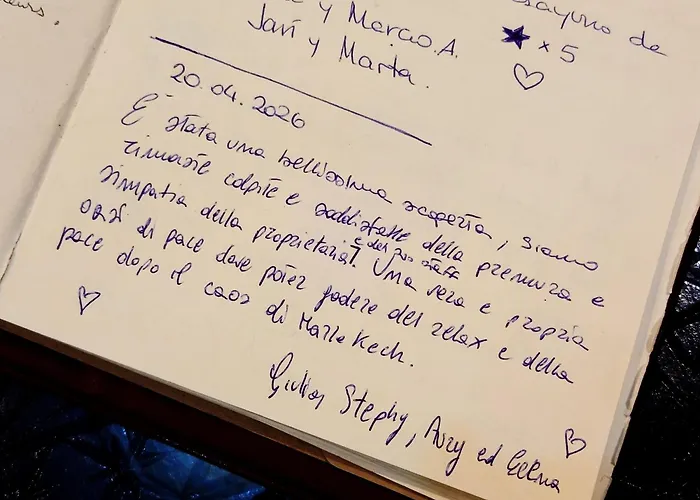 y Marcio A.
Javi y Marta.
desayuno de
x 5
20.04.2026
É stata una bellissima scoperta, siamo
rimaste colpite e soddisfatte della premura e
simpatia della proprietaria e del suo staff. Una vera e propria
oasi di pace dove poter godere del relax e della
pace dopo il caos di Marrakech.
Giulia, Stephy, Aury ed Elena